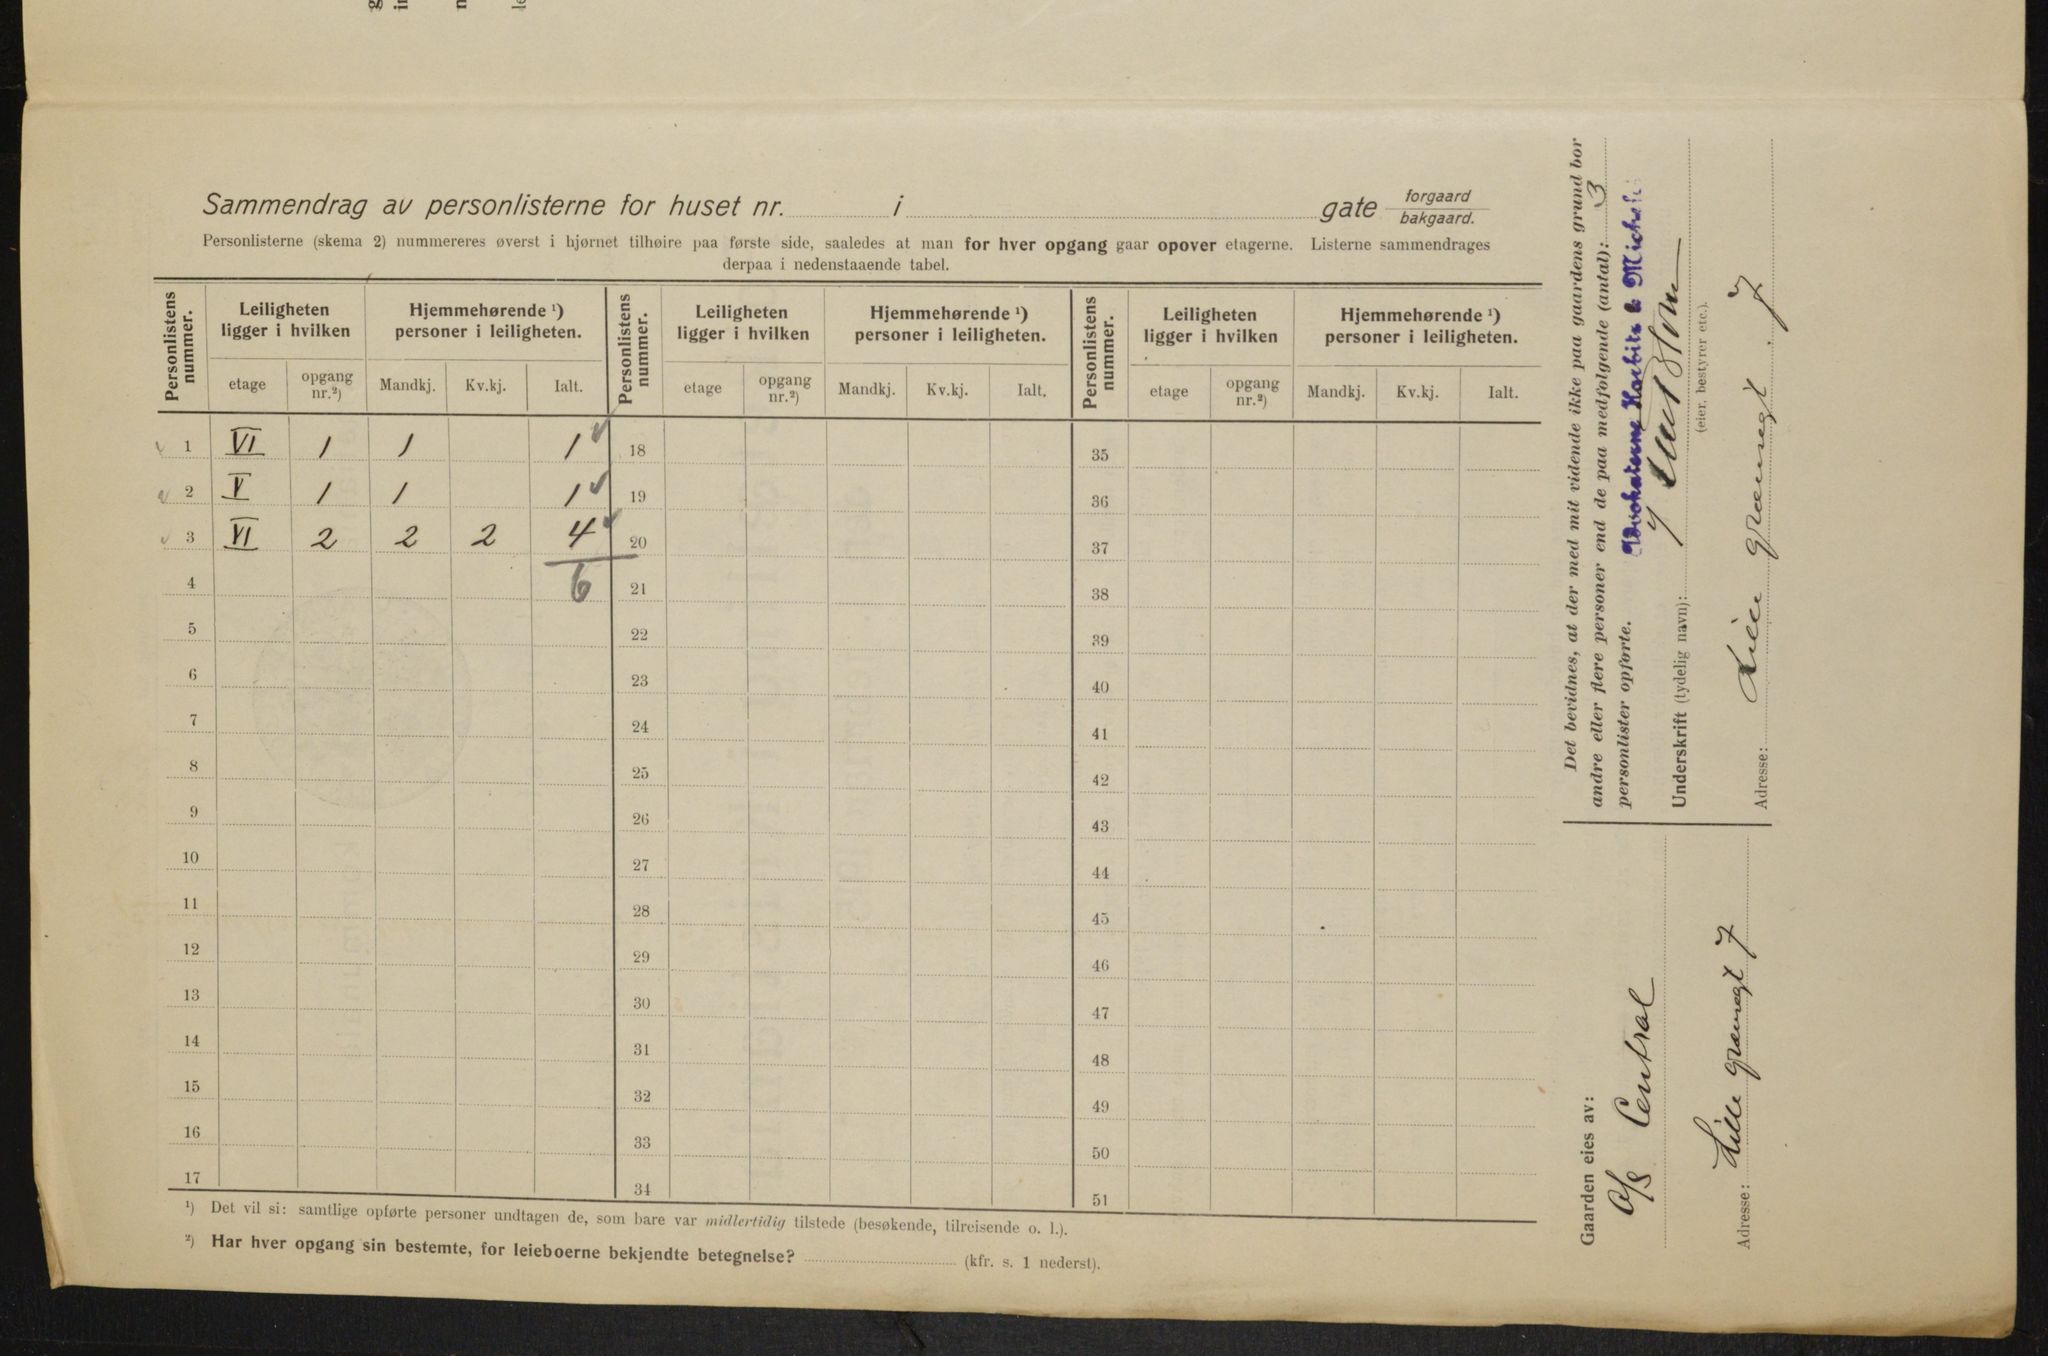 Sammendrag av personlisterne for huset nr. i gate forgaard
bakgaard.
Personlisterne (skema 2) nummereres øverst i hjørnet tilhøire paa første side, saaledes at man for hver opgang gaar opover etagerne. Listerne sammendrages
derpaa i nedenstaaende tabel.
Personlistens nummer. Leiligheten ligger i hvilken Hjemmehørende ¹) personer i leiligheten. Personlistens nummer. Leiligheten ligger i hvilken Hjemmehørende ¹) personer i leiligheten. Personlistens nummer. Leiligheten ligger i hvilken Hjemmehørende ¹) personer i leiligheten.
etage opgang nr.²) Mandkj. Kv.kj. Ialt. etage opgang nr.²) Mandkj. Kv.kj. Ialt. etage opgang nr.²) Mandkj. Kv.kj. Ialt.
1 VI 1 1 1 18 35
2 V 1 1 1 19 36
3 VI 2 2 2 4 20 37
4 6 21 38
5 22 39
6 23 40
7 24 41
8 25 42
9 26 43
10 27 44
11 28 45
12 29 46
13 30 47
14 31 48
15 32 49
16 33 50
17 34 51
¹) Det vil si: samtlige opførte personer undtagen de, som bare var midlertidig tilstede (besøkende, tilreisende o. l.).
²) Har hver opgang sin bestemte, for leieboerne bekjendte betegnelse? (kfr. s. 1 nederst).
Det bevidnes, at der med mit vidende ikke paa gaardens grund bor
andre eller flere personer end de paa medfølgende (antal): 3
personlister opførte. Advokaterne Harbitz &
Underskrift (tydelig navn):
(eier, bestyrer etc.).
Adresse: Lille Grænsegt. 7
Gaarden eies av:
A/S Central
Adresse: Lille Grænsegt 7